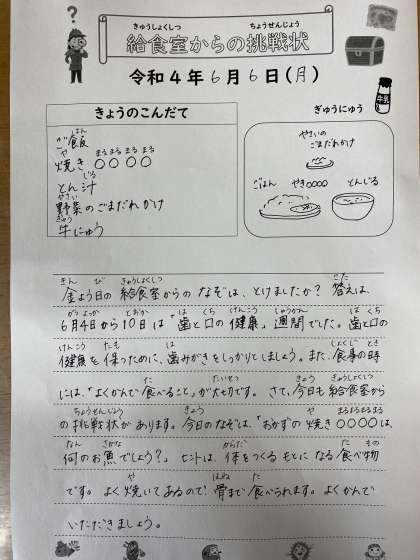 きゅうしょくしつ ちょうせんじょう
給食室からの挑戦状
令和4年6月6日(月)
牛乳
きょうのこんだて
はん
ご飯
や まる まる まる まる
焼き〇〇〇〇
じる
とん汁
やさい
野菜のごまだれかけ
ぎゅう
牛にゅう
ぎゅうにゅう
やさいの
ごまだれかけ
ごはん やき〇〇〇〇 とんじる
きん び きゅうしょくしつ こた
金よう日の 給食室からの なぞは、とけましたか? 答えは、
がつ よっか とおか は くち けんこう しゅうかん は くち
6月4日から10日は「歯と口の健康」週間でした。歯と口の
けんこう たも は しょくじ とき
健康を 保つために、歯みがきをしっかりとしましょう。また、食事の時
た たいせつ きょう きゅうしょくしつ
には、「よくかんで 食べること」が大切です。さて、今日も 給食室から
ちょうせんじょう きょう や まるまるまるまる
の 挑戦状が あります。今日のなぞは、「おかずの 焼き〇〇〇〇は、
なん さかな からだ た もの
何のお魚でしょう?」 ヒントは、体をつくる もとになる 食べ物
や ほね た
です。よく焼いてあるので、骨まで食べられます。よくかんで
いただきましょう。